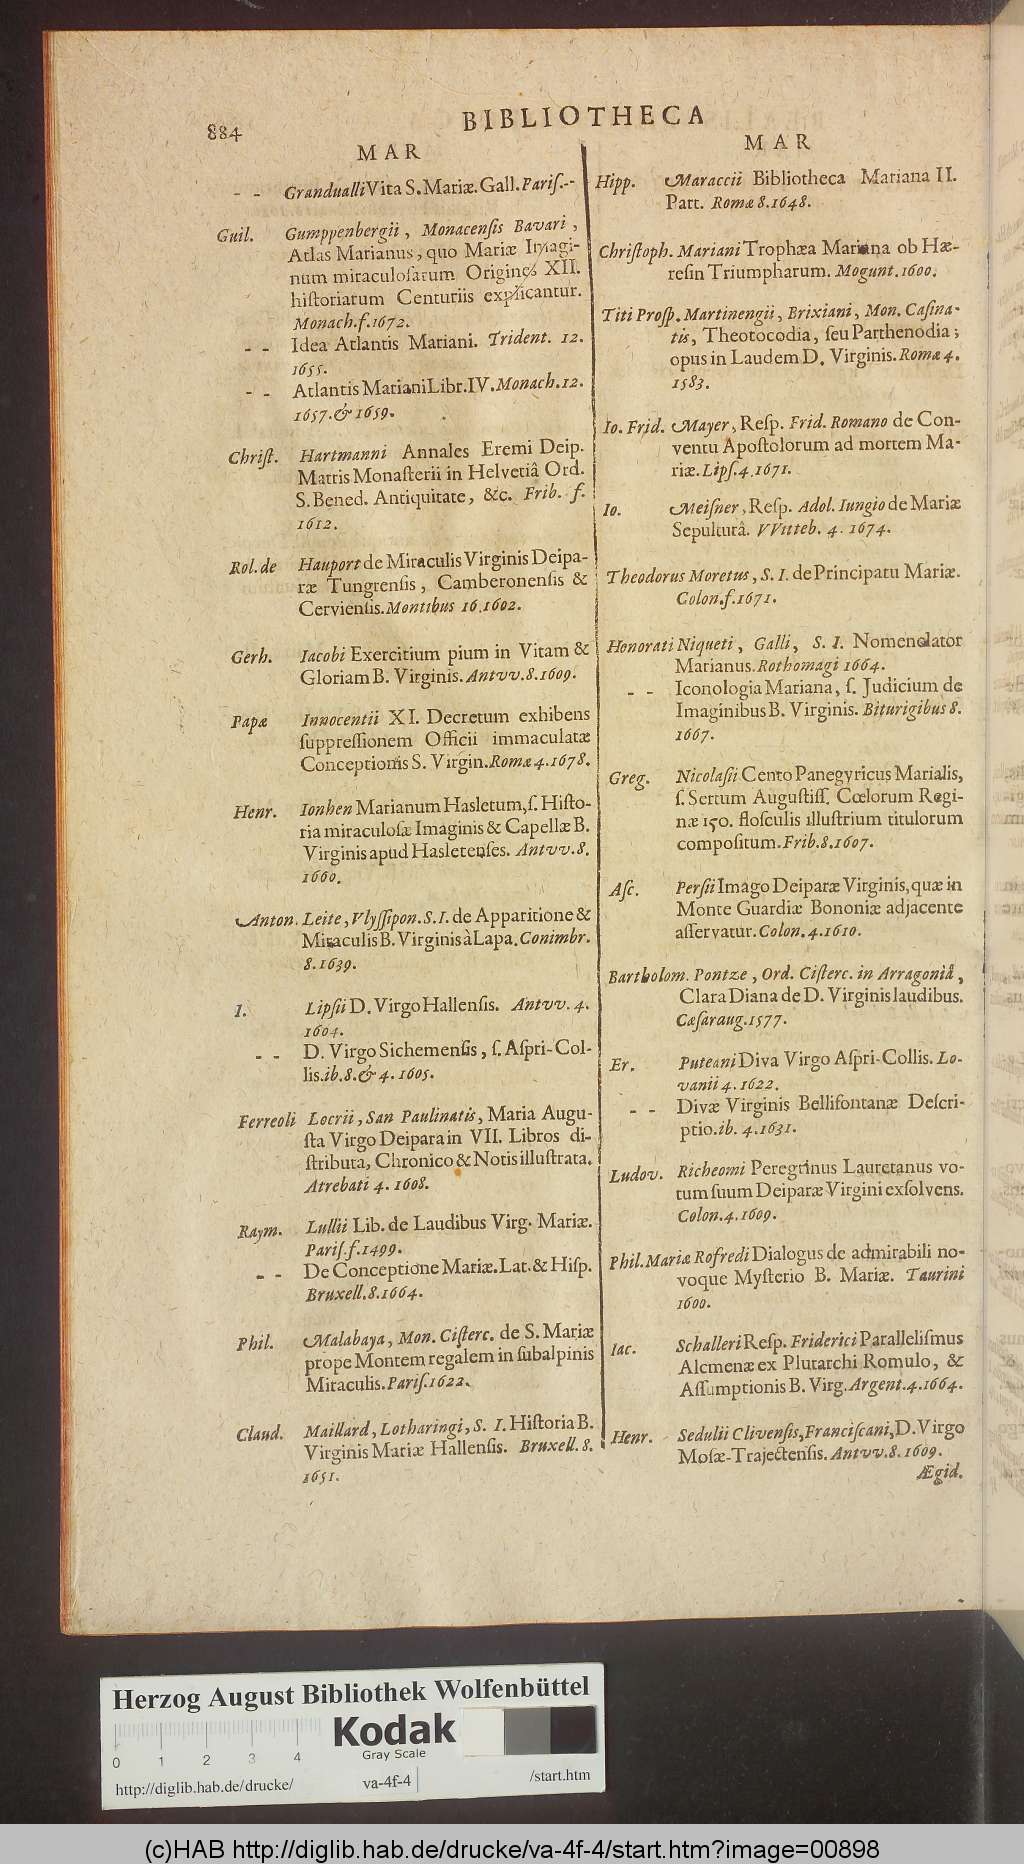 884
BIBLIOTHECA
MAR
- - Grandualli Vita S. Mariæ. Gall. Pariſ.--
Guil. Gumppenbergii, Monacenſis Bavari,
Atlas Marianus, quo Mariæ Imagi-
num miraculoſarum Origines XII.
hiſtoriarum Centuriis explicantur.
Monach.f.1672.
- - Idea Atlantis Mariani. Trident. 12.
1655.
- - Atlantis Mariani Libr. IV. Monach. 12.
1657. & 1659.
Chriſt. Hartmanni Annales Eremi Deip.
Matris Monaſterii in Helvetiâ Ord.
S. Bened. Antiquitate, &c. Frib. f.
1612.
Rol. de Hauport de Miraculis Virginis Deipa-
ræ Tungrenſis, Camberonenſis &
Cervienſis. Montibus 16.1602.
Gerh. Iacobi Exercitium pium in Vitam &
Gloriam B. Virginis. Antvv.8.1609.
Papæ Innocentii XI. Decretum exhibens
ſuppreſſionem Officii immaculatæ
Conceptionis S. Virgin. Romæ 4.1678.
Henr. Ionhen Marianum Hasletum, ſ. Hiſto-
ria miraculoſæ Imaginis & Capellæ B.
Virginis apud Hasletenſes. Antvv.8.
1660.
Anton. Leite, Vlyſſipon. S.I. de Apparitione &
Miraculis B. Virginis à Lapa. Conimbr.
8.1639.
I. Lipſii D. Virgo Hallenſis. Antvv. 4.
1604.
- - D. Virgo Sichemenſis, ſ. Aſpri-Col-
lis. ib. 8. & 4. 1605.
Ferreoli Locrii, San Paulinatis, Maria Augu-
ſta Virgo Deipara in VII. Libros di-
ſtributa, Chronico & Notis illuſtrata.
Atrebati 4. 1608.
Raym. Lullii Lib. de Laudibus Virg. Mariæ.
Pariſ.f.1499.
- - De Conceptione Mariæ. Lat. & Hiſp.
Bruxell.8.1664.
Phil. Malabaya, Mon. Ciſterc. de S. Mariæ
prope Montem regalem in ſubalpinis
Miraculis. Pariſ.1622.
Claud. Maillard, Lotharingi, S. I. Hiſtoria B.
Virginis Mariæ Hallenſis. Bruxell. 8.
1651.
MAR
Hipp. Maraccii Bibliotheca Mariana II.
Part. Romæ 8.1648.
Chriſtoph. Mariani Trophæa Mariana ob Hæ-
reſin Triumpharum. Mogunt.1600.
Titi Proſp. Martinengii, Brixiani, Mon. Caſina-
tis, Theotocodia, ſeu Parthenodia;
opus in Laudem D. Virginis. Romæ 4.
1583.
Io. Frid. Mayer, Reſp. Frid. Romano de Con-
ventu Apoſtolorum ad mortem Ma-
riæ. Lipſ.4.1671.
Io. Meiſner, Reſp. Adol. Iungio de Mariæ
Sepulturâ. VVitteb. 4. 1674.
Theodorus Moretus, S. I. de Principatu Mariæ.
Colon.f.1671.
Honorati Niqueti, Galli, S. I. Nomenclator
Marianus. Rothomagi 1664.
- - Iconologia Mariana, ſ. Judicium de
Imaginibus B. Virginis. Biturigibus 8.
1667.
Greg. Nicolaſii Cento Panegyricus Marialis,
ſ. Sertum Auguſtiſſ. Cœlorum Regi-
næ 150. floſculis illuſtrium titulorum
compoſitum. Frib.8.1607.
Aſc. Perſii Imago Deiparæ Virginis, quæ in
Monte Guardiæ Bononiæ adjacente
aſſervatur. Colon. 4.1610.
Bartholom. Pontze, Ord. Ciſterc. in Arragoniâ,
Clara Diana de D. Virginis laudibus.
Cæſaraug.1577.
Er. Puteani Diva Virgo Aſpri-Collis. Lo-
vanii 4.1622.
- - Divæ Virginis Bellifontanæ Deſcri-
ptio. ib. 4.1631.
Ludov. Richeomi Peregrinus Lauretanus vo-
tum ſuum Deiparæ Virgini exſolvens.
Colon.4.1609.
Phil. Mariæ Rofredi Dialogus de admirabili no-
voque Myſterio B. Mariæ. Taurini
1600.
Iac. Schalleri Reſp. Friderici Paralleliſmus
Alcmenæ ex Plutarchi Romulo, &
Aſſumptionis B. Virg. Argent.4.1664.
Henr. Sedulii Clivenſis, Franciſcani, D. Virgo
Moſæ-Trajectenſis. Antvv.8.1609.
Ægid.
Herzog August Bibliothek Wolfenbüttel
Kodak
Gray Scale
0 1 2 3 4
http://diglib.hab.de/drucke/ va-4f-4 /start.htm
(c)HAB http://diglib.hab.de/drucke/va-4f-4/start.htm?image=00898